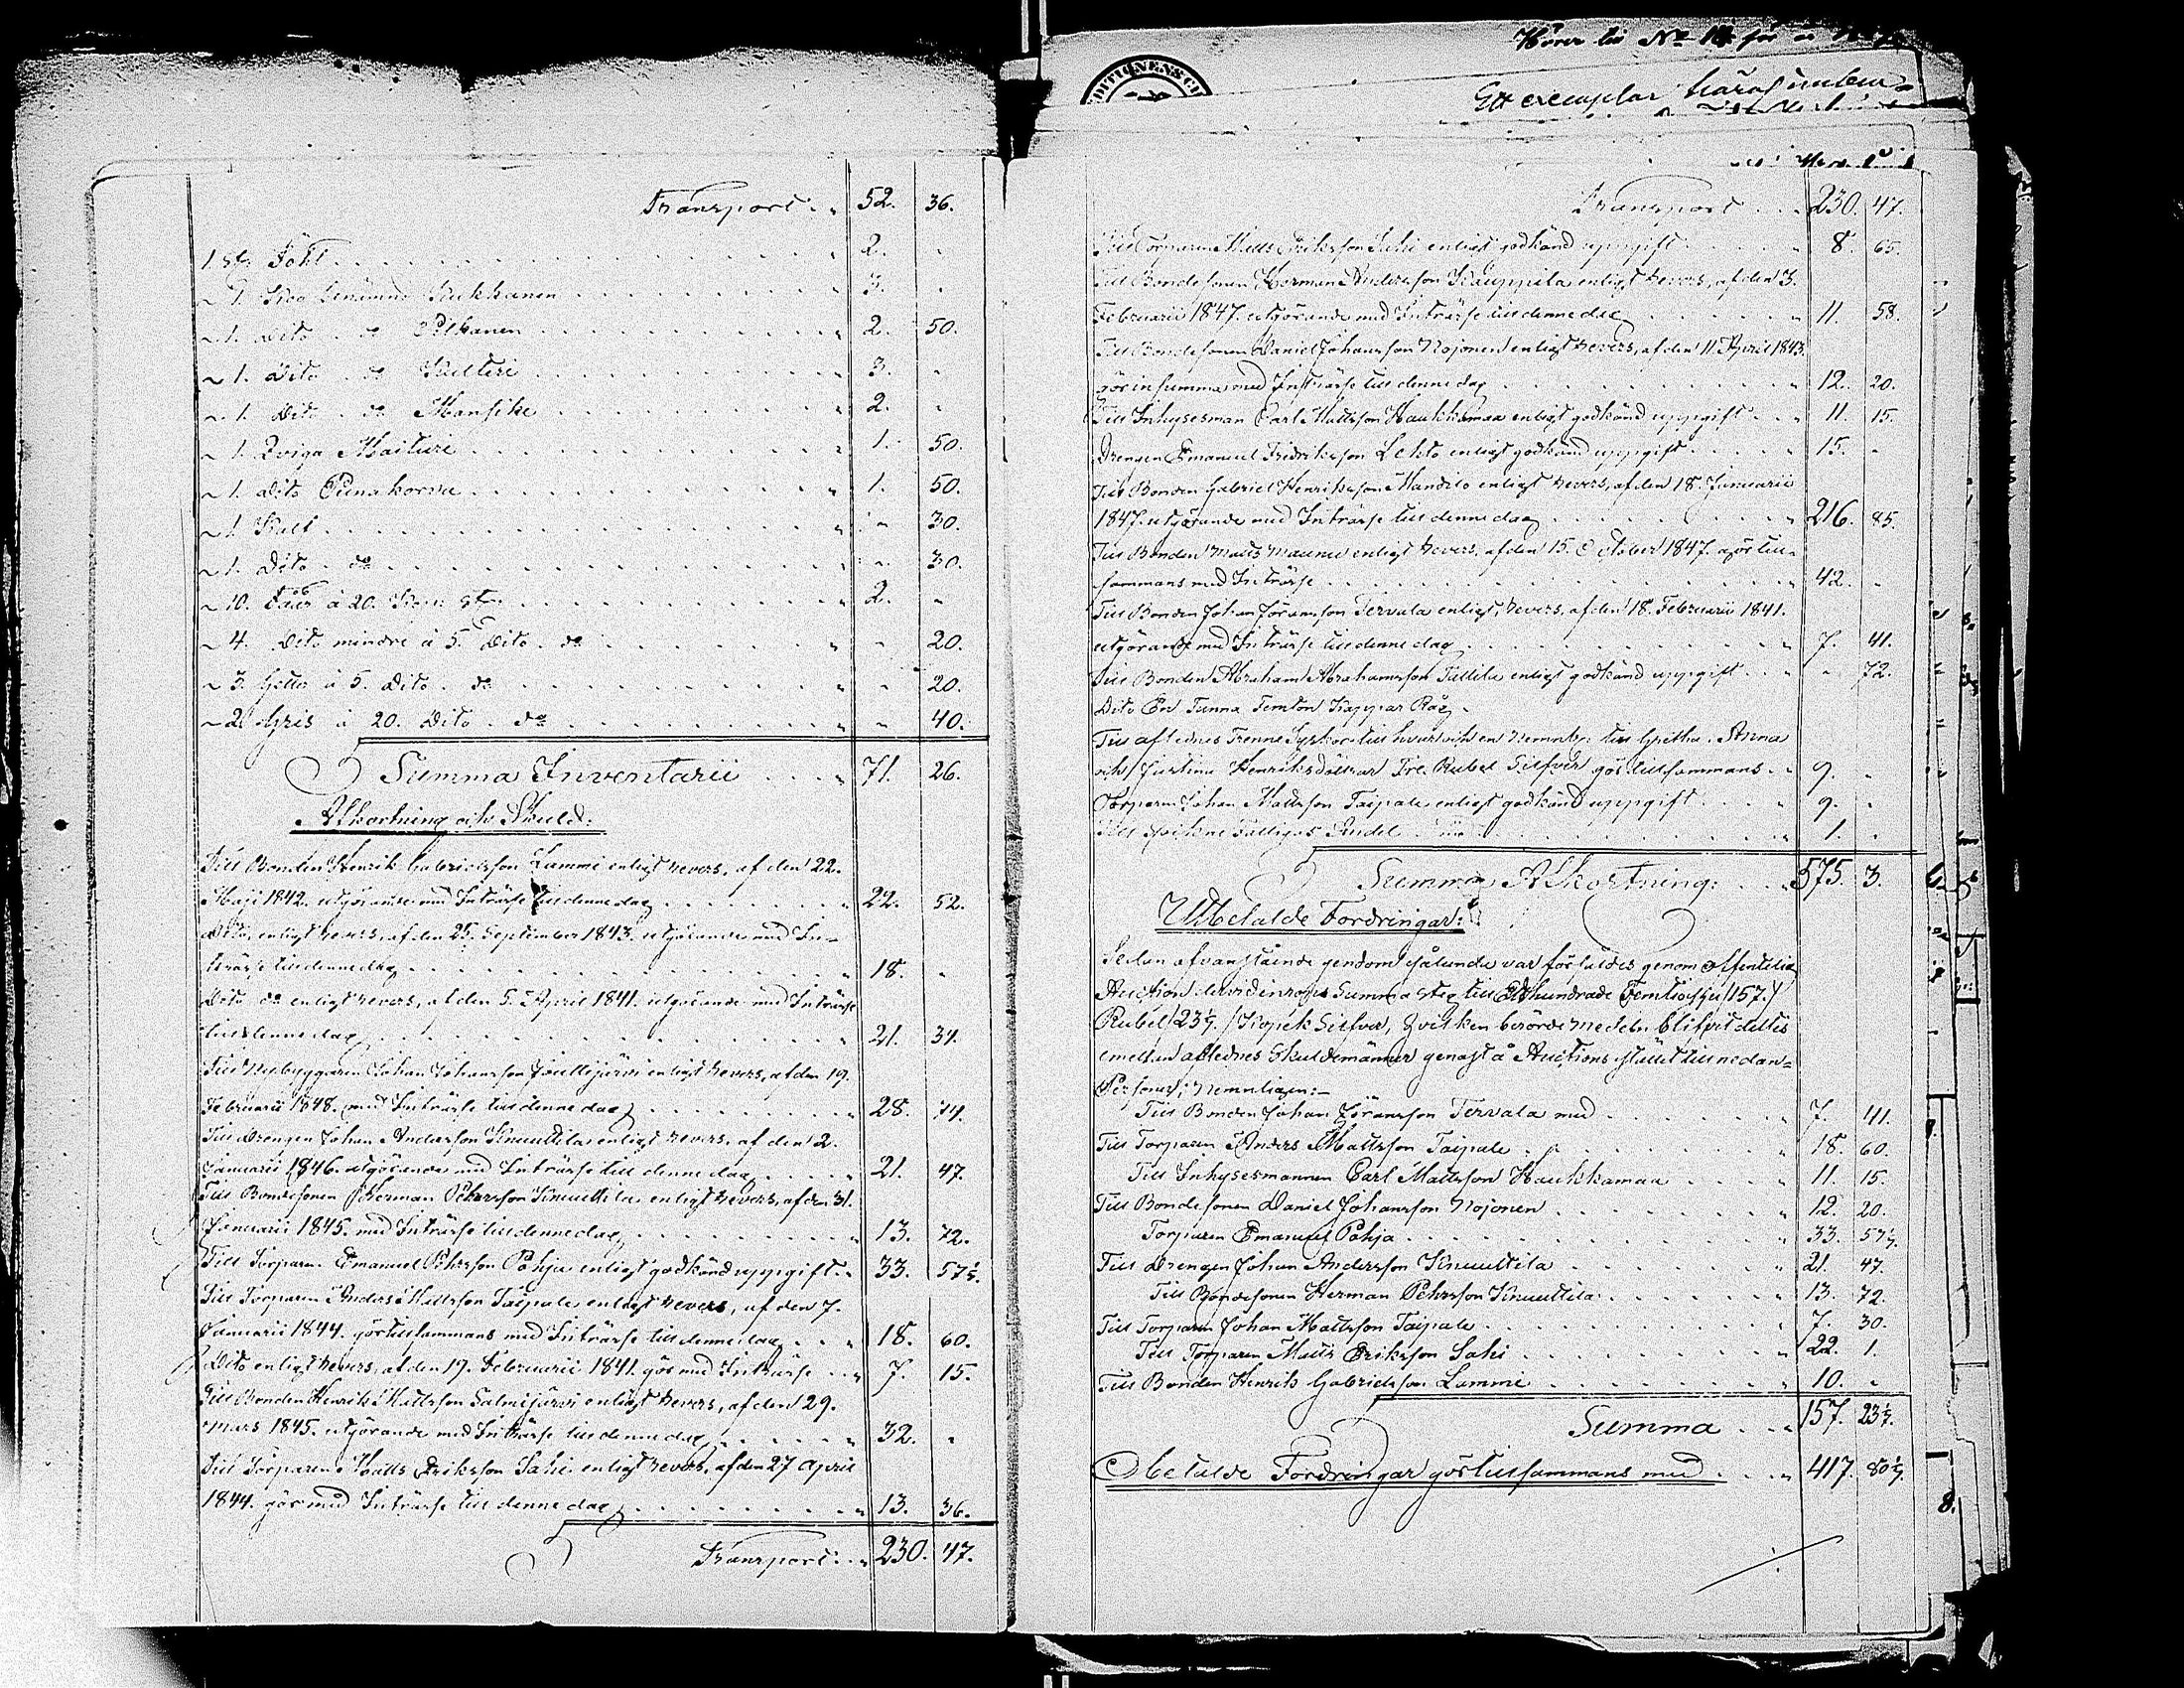 Transport 52. 36.
1. st. Föhl 2. "
" 1. Ko benämnd Kukkanen 3. "
" 1. Dito do 2. 50.
" 1. Dito do 3. "
" 1. Dito do Mansike 2. "
" 1. Qviga Maituri 1. 50.
" 1. Dito Punakorva 1. 50.
" 1. Kalf " 30.
" 1. Dito do " 30.
" 10. Får à 20. Kop. st. 2. "
" 4. Dito mindre à 5. Dito do " 20.
" Dito do " 20.
" 2. Gris à 20. Dito do " 40.
Summa Inventarii 71. 26.
Afkortning och Skuld:
Till Bonden Henrik Gabrielsson Lammi enligt revers, af den 22.
Maji 1842. utgörande med Inträsse till denne dag 22. 52.
Dito, enligt revers, af den 25. September 1843. utgörande med In-
trässe till denne dag 18. "
Dito do enligt revers, af den 5. April 1841. utgörande med Inträsse
till denne dag 21. 34.
Till Nybyggaren Johan Johansson enligt revers, af den 19.
Februarii 1848. med Inträsse till denne dag 28. 74.
Till Drengen Johan Andersson Knuuttila enligt revers, af den 2.
Januarii 1846. utgörande med Inträsse till denne dag 21. 47.
Till Bondesonen Herman Pehrsson Knuuttila enligt revers, af den 31.
Januarii 1845. med Inträsse till denne dag 13. 72.
Till Torparen Emanuel Pehrsson Pohja enligt godkänd uppgift 33. 57½.
Till Torparen Anders Mattsson Taipale enligt revers, af den 7.
Januarii 1844. gör tillsammans med Inträsse till denne dag 18. 60.
Dito enligt revers, af den 19. Februarii 1841. gör med Inträsse 7. 15.
Till Bonden Henrik Mattsson Salmijärvi enligt revers, af den 29.
Mars 1845. utgörande med Inträsse till denne dag 32. "
Till Torparen Matts Eriksson Sahi enligt revers, af den 27 April
1844. gör med Inträsse till denne dag 13. 36.
Transport 230. 47.
Hörer till No 14 för
Ett exemplar häraf
Transport 230. 47.
Till Torparen Matts Eriksson Sahi enligt godkänd uppgift 8. 65.
Till Bondesonen Herman Andersson Kauppila enligt revers, af den 3.
Februarii 1847. utgörande med Inträsse till denne dag 11. 58.
Till Bondesonen Daniel Johansson Nojonen enligt revers, af den 11 April 1843.
gör in summa med Inträsse till denne dag 12. 20.
Till Inhysesman Carl Mattsson Haukkamaa enligt godkänd uppgift 11. 15.
Drengen Emanuel Fredriksson Lehto enligt godkänd uppgift 15. "
Till Bonden Gabriel Henriksson Mandilo enligt revers, af den 18. Januarii
1847. utgörande med Inträsse till denne dag 216. 85.
Till Bonden Matts Maunu enligt revers, af den 15. October 1847. gör till-
sammans med Inträsse 42. "
Till Bonden Johan Göransson Tervala enligt revers, af den 18. Februarii 1841.
utgörande med Inträsse till denne dag 7. 41.
Till Bonden Abraham Abrahamsson enligt godkänd uppgift " 72.
Dito En Tunna Femton Kappar Råg.
Till aflednes Trenne Syskon till hvar och en nemnl. till Gretha, Anna
och Justina Henriksdöttrar Tre Rubel Silfver gör tillsammans 9. "
Torparen Johan Mattsson Taipale enligt godkänd uppgift 9. "
Till Socknens Fattiges Andel 1. "
Summa Afkortning: 575. 3.
Utbetalde Fordringar:
Sedan ofvanstående Egendom sålunda var försåldes genom offentelig
Auction derviden Summa steg till Etthundrade Femtiosju /157./
Rubel /23½./ Kopek Silfver, Hvilken berörde medel blifvit deltes
emellan aflednes Skuldemänner genast å Auctions stället till nedan-
Personer; nemnligen:
Till Bonden Johan Göransson Tervala med 7. 41.
Till Torparen Anders Mattsson Taipale 18. 60.
Till Inhysesmannen Carl Mattsson Haukkamaa 11. 15.
Till Bondesonen Daniel Johansson Nojonen 12. 20.
Torparen Emanuel Pohja 33. 57½.
Till Drengen Johan Andersson Knuuttila 21. 47.
Till Bondesonen Herman Pehrsson Knuuttila 13. 72.
Till Torparen Johan Mattsson Taipale 7. 30.
Till Torparen Matts Eriksson Sahi 22. 1.
Till Bonden Henrik Gabrielsson Lammi 10. "
Summa 157. 23½.
Obetalde Fordringar gör tillsammans med 417. 80½.
8.